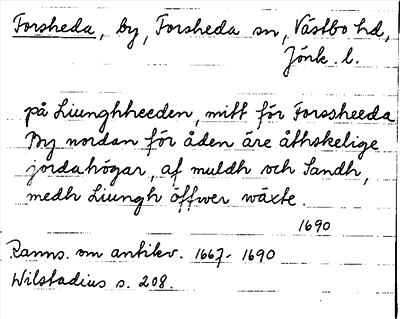 Forsheda, by, Forsheda sn, Västbo hd,
Jönk. l.
på Liunghheeden, mitt för Forssheeda
By nordan för åden äre åthskelige
jordahögar, af muldh och Sandh,
medh Liungh öffwer wäxte.
1690
Ranns. om antikv. 1667-1690
Wilstadius s. 208.